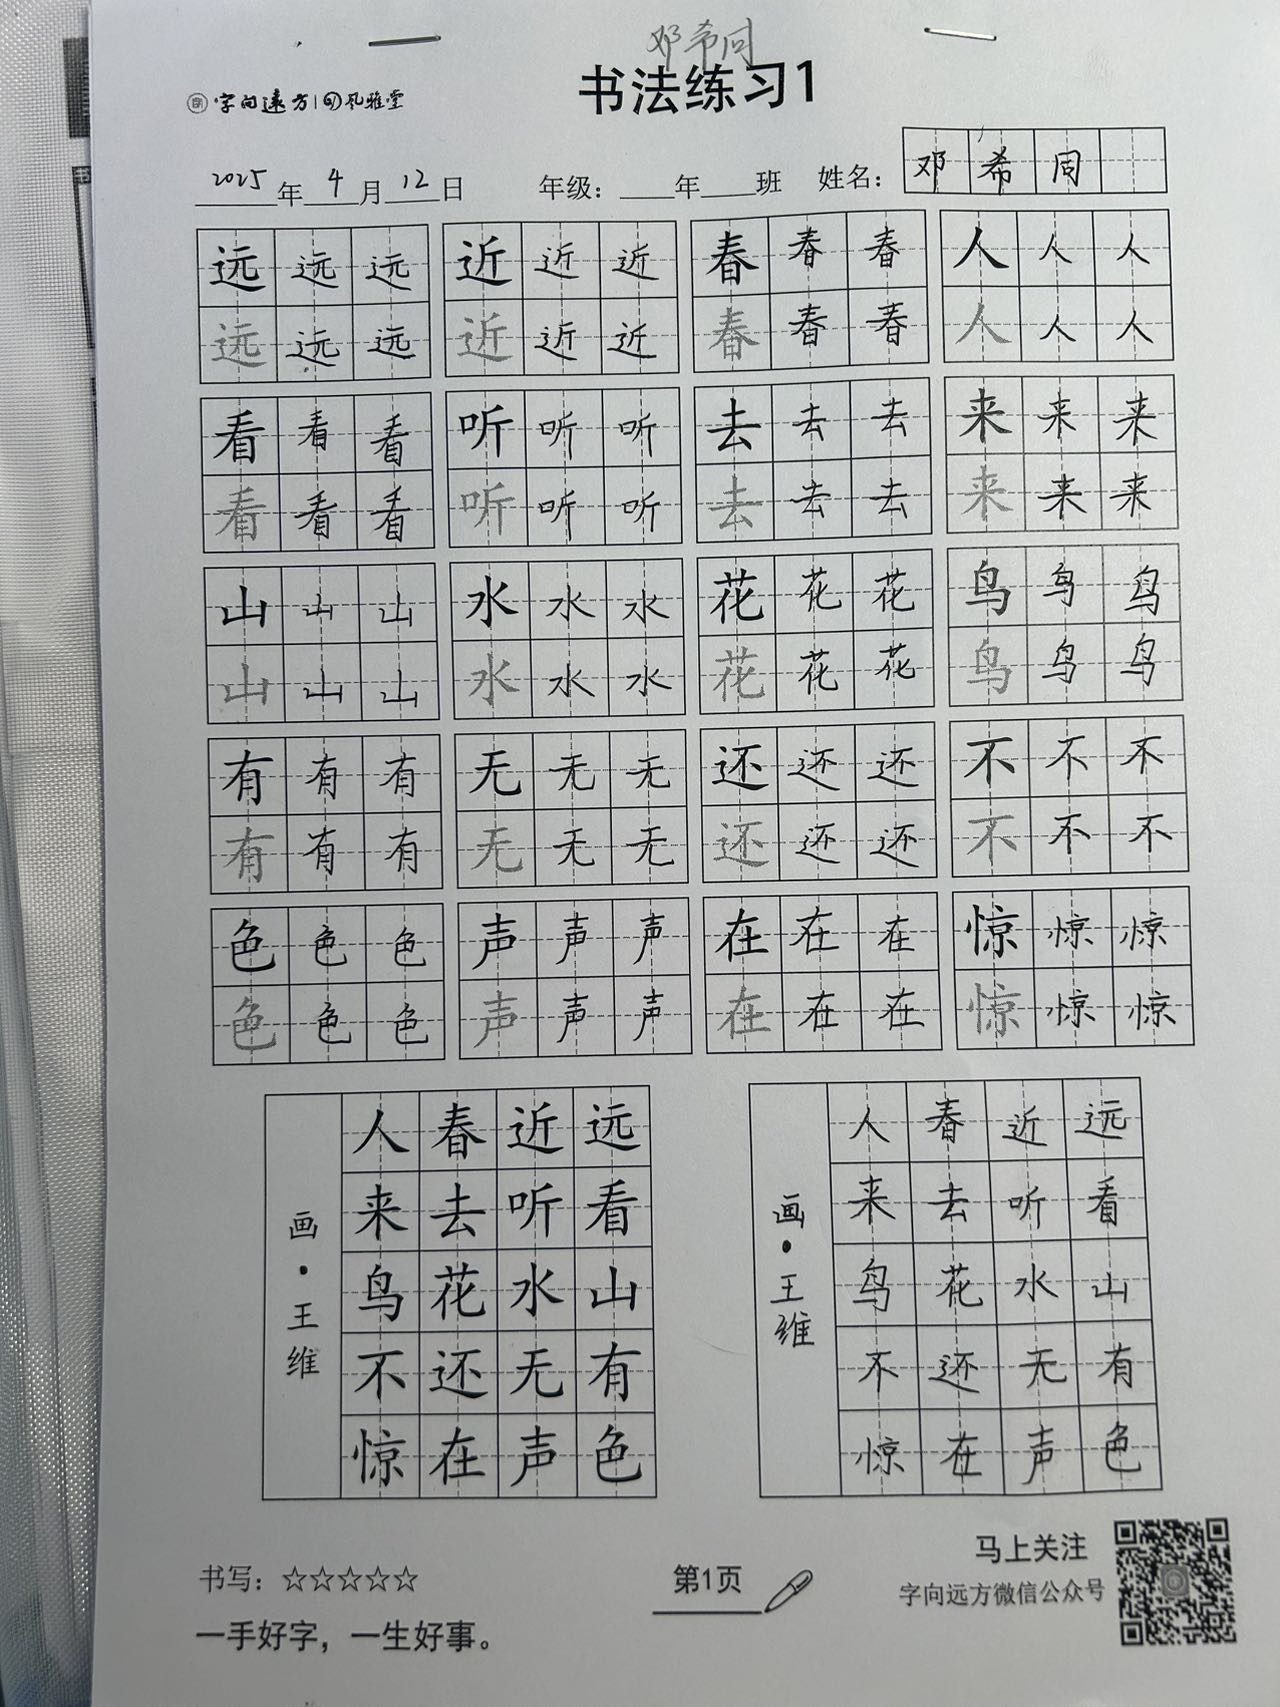 邓希同
书法练习1
字向远方 风雅堂
2025年4月12日 年级：____年____班 姓名：邓希同
远远远 近近近 春春春 人人人
远远远 近近近 春春春 人人人
看看看 听听听 去去去 来来来
看看看 听听听 去去去 来来来
山山山 水水水 花花花 鸟鸟鸟
山山山 水水水 花花花 鸟鸟鸟
有有有 无无无 还还还 不不不
有有有 无无无 还还还 不不不
色色色 声声声 在在在 惊惊惊
色色色 声声声 在在在 惊惊惊
远看山有色
近听水无声
春去花还在
人来鸟不惊
画·王维
远看山有色
近听水无声
春去花还在
人来鸟不惊
画·王维
书写：☆☆☆☆☆
一手好字，一生好事。
第1页
马上关注
字向远方微信公众号